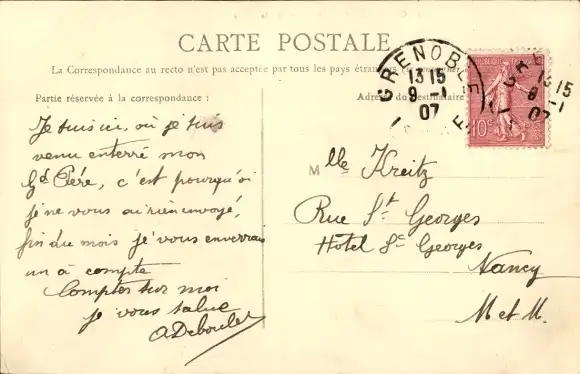 CARTE POSTALE
La Correspondance au recto n'est pas acceptée par tous les pays
Partie réservée à la correspondance :
Adresse du destinataire
Je suis ici, où je suis
venu enterré mon
Gd Père, c'est pourqu'oi
je ne vous ai rien envoyé,
fin du mois je vous enverrai
un à compte
Compter sur moi
je vous salue
ADeboulet
Mlle Kreitz
Rue St Georges
Hotel St Georges
Nancy
M et M.
GRENOBLE
13 15
9 -1
07
10
13 15
9 -1
07